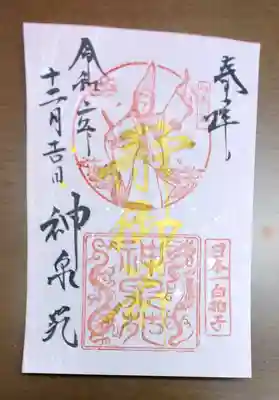 奉拝
日本一 白拍子
神泉苑
令和五年
十二月吉日
神泉苑